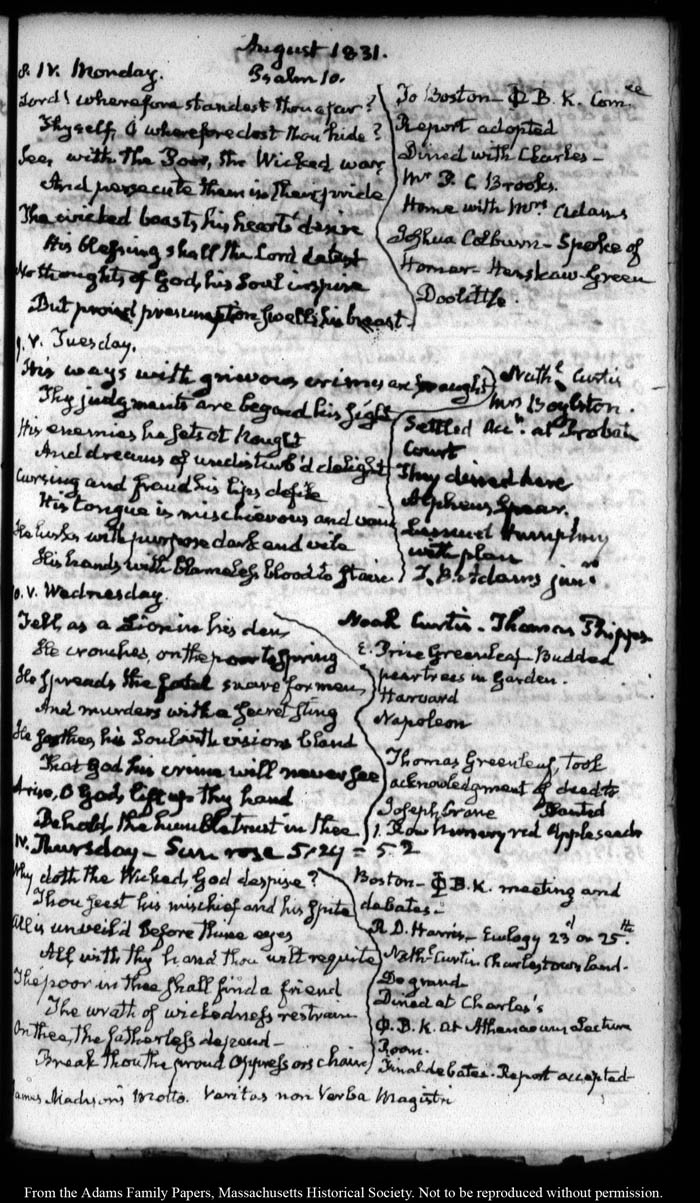 August 1831.
8. IV. Monday. Psalm 10.
Lord! wherefore standest thou afar?
Thyself, O wherefore dost thou hide?
See, with the Poor, the Wicked war,
And persecute them in their pride
The wicked boasts his heart's desire
His blessing shall the Lord detest
No thoughts of God, his Soul inspire
But proud presumption swells his breast.
To Boston - Φ B. K. Comee
Report adopted
Dined with Charles -
Mr P. C. Brooks.
Home with Mrs Adams
Joshua Colburn - Spoke of
Homar - Henshaw - Green
Doolittle.
9. V. Tuesday.
His ways with grievous crimes are fraught
Thy judgments are beyond his sight
His enemies he sets at Naught
And dreams of undisturb'd delight
Cursing and fraud his lips defile
His tongue is mischievous and vain
He lurks with purpose dark and vile
His hands with blameless blood to stain
Nathl Curtis
Mrs Boylston.
Settled Acct. at Probate
Court
They dined here
Alpheus Spear.
Lemuel Humphrey
with plan
T. B. Adams junr
10. V. Wednesday.
Fell, as a Lion in his den,
He crouches, on the poor to spring
He spreads the fatal snare for men,
And murders with a secret sting
He soothes his Soul with visions bland
That God his crime will never see
Arise, O God, lift up thy hand
Behold, the humble trust in thee
Noah Curtis - Thomas Phipps
E. Price Greenleaf - Budded
pear trees in Garden.
Harvard
Napoleon
Thomas Greenleaf, took
acknowledgment of deed to
Joseph Crane Planted
1. Row Nursery red Appleseeds
IV. Thursday - Sun rose 5:24 = 5:2
Why doth the Wicked, God despise?
Thou seest his mischief and his spite
All is unveil'd before thine eyes
All, with thy hand thou wilt requite
The poor in thee shall find a friend
The wrath of wickedness restrain
On thee, the fatherless depend -
Break thou the proud Oppressors chain
Boston - Φ B. K. meeting and
debates -
R. D. Harris - Eulogy 23d or 25th.
Nathl Curtis Charlestown land.
Degrand
Dined at Charles's
Φ. B. K. at Athenaeum Lecture
Room.
Final debates. Report accepted
James Madison's Motto. Veritas non Verba Magistri
From the Adams Family Papers, Massachusetts Historical Society. Not to be reproduced without permission.